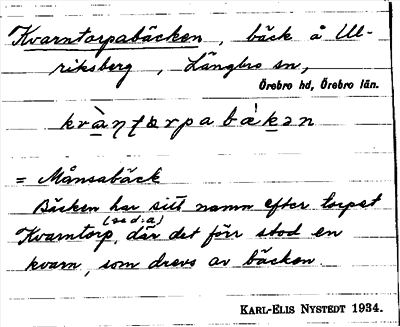 Kvarntorpabäcken, bäck å Ul-
riksberg, Längbro sn,
Örebro hd, Örebro län.
kvàṇṭorpabä̀kən
= Månsabäck
Bäcken har sitt namn efter torpet
(se d:a)
Kvarntorp, där det förr stod en
kvarn, som drevs av bäcken.
KARL-ELIS NYSTEDT 1934.